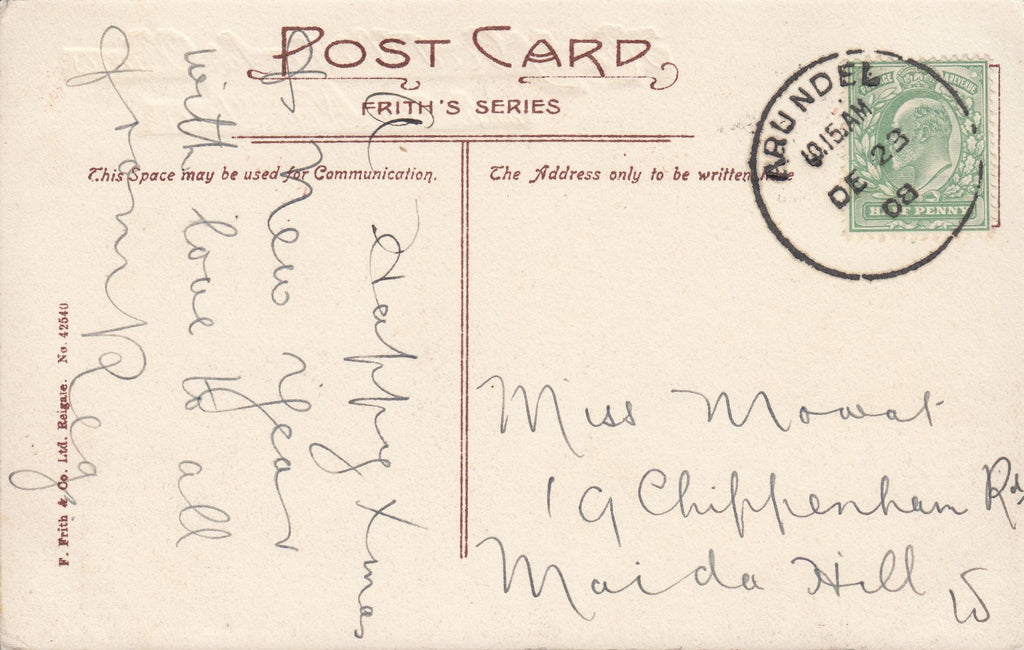 POST CARD
FRITH'S SERIES
This Space may be used for Communication.
The Address only to be written
ARUNDEL
10.15.AM
DE 23
08
REVENUE
HALF PENNY
A Happy Xmas
& New Year
with love to all
from Reg
Miss Mowat
19 Chippenham Rd
Maida Hill
W
F. Frith & Co. Ltd. Reigate. No. 42540